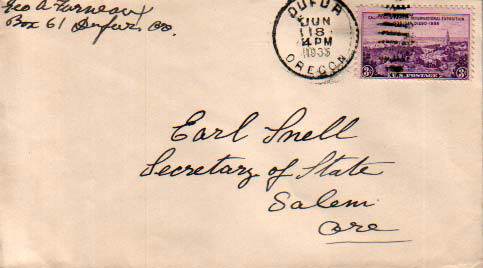 Geo A Furneaux
Box 61 Dufur, Ore.
DUFUR
JUN
18
4 PM
1935
OREGON
CALIFORNIA PACIFIC INTERNATIONAL EXPOSITION
SAN DIEGO - 1935
3¢ U.S. POSTAGE 3¢
Earl Snell
Secretary of State
Salem
Ore